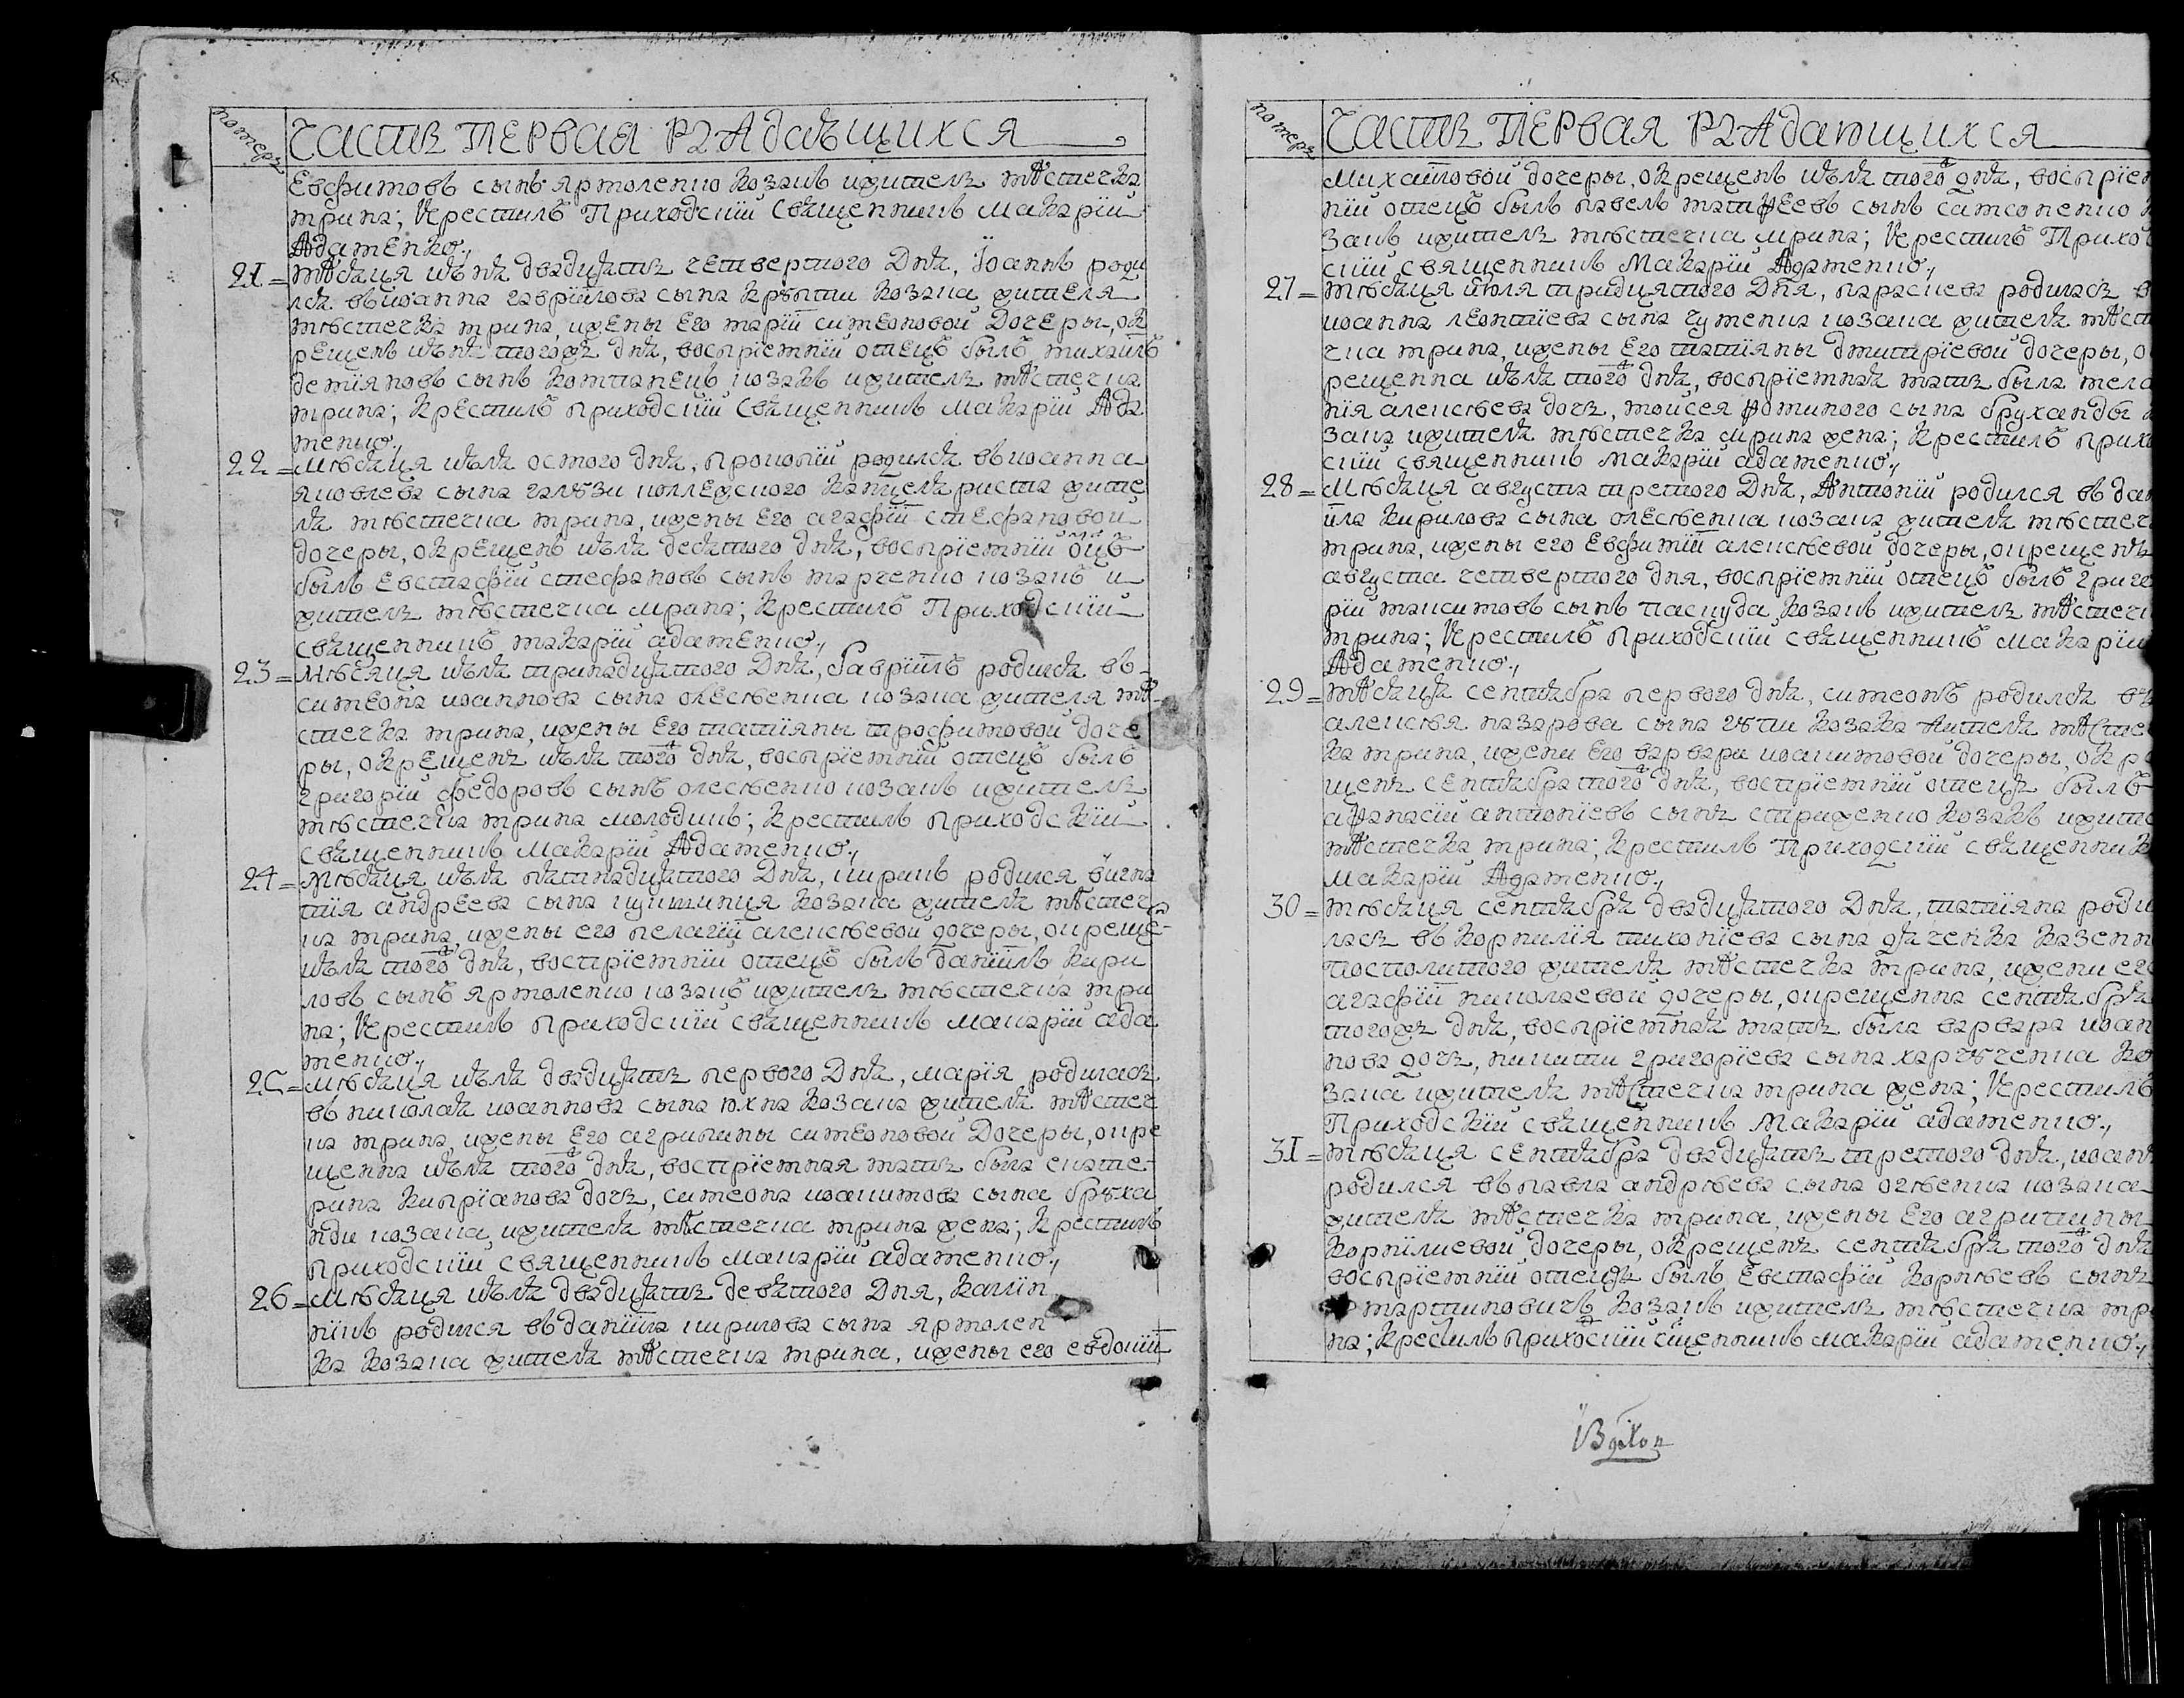 номеръ
ЧАСТЬ ПЕРВАЯ РОЖДАЮЩИХСЯ
Евфимовъ сынъ ярмоленко козакъ ижитель мѣстечка
мрина; Крестилъ Приходскій Священникъ Макарій
Адаменко.,
21= мѣсяца іюня двадцять четвертого Дня, Іоаннъ роди
лся въ иоанна гаврійлова сына козака жителя
мѣстечка мрина, ижены Его марій симеоновой Дочеры, ок
рещенъ июня тогожъ дня, воспріемній отецъ былъ михайлъ
деміяновъ сынъ компанецъ козакъ ижитель мѣстечка
мрина; Крестилъ приходскій Священникъ Макарій Ада
менко.,
22= Мѣсяця июля осмого дня, прокопій родился въ иоанна
яковлева сына галузи коллежского канцеляриста жите
ля мѣстечка мрина, ижены Его агафій стефановой
дочеры, окрещенъ июля десятого дня, воспріемній оцъ
былъ Евстафій стефановъ сынъ марченко козакъ и
житель мѣстечка мрина; Крестилъ Приходскій
священникъ макарій адаменко.,
23= Мѣсяця июля тринадцятого Дня, Гаврійлъ родился въ
симеона иоаннова сына олексѣенка козака жителя мѣ
стечка мрина, ижены Его татіяны трофимовой доче
ры, окрещенъ июля тогожъ дня, воспріемній отецъ былъ
григорій федоровъ сынъ олексѣенко козакъ ижитель
мѣстечка мрина молодикъ; Крестилъ приходскій
священникъ Макарій Адаменко.,
24= Мѣсяця июля пятнадцятого Дня, кирикъ родился въ игна
тія андрЕева сына козака жителя мѣстеч
ка мрина, ижены его пелагій алексѣевой дочеры, окреще-
июля тогожъ дня, воспріемній отецъ былъ данійлъ кири
ловъ сынъ ярмоленко козакъ ижитель мѣстечка мри
на; Крестилъ приходскій священникъ Макарій ада
менко.,
25= Мѣсяця июля двадцять первого Дня, Марія родилась
въ николая иоаннова сына юхна козака жителя мѣстеч
ка мрина, ижены Его агрипины симеоновой Дочеры, окре
щенна июля тогожъ дня, воспріемная мать была екате-
рина кипріанова дочь, симеона иоакимова сына бруха
нди козака, ижителя мѣстечка мрина жена; Крестилъ
приходскій священникъ макарій адаменко.,
26= Мѣсяця июля двадцять девятого Дня, калин
никъ родился въ данійла кирилова сына ярмолен
ка козака жителя мѣстечка мрина, ижены его евдокій
номеръ
ЧАСТЬ ПЕРВАЯ РОЖДАЮЩИХСЯ
Михайловой дочеры, окрещенъ июля тогожъ дня, воспріем
ній отецъ былъ павелъ матфЕевъ сынъ самсоненко к
закъ ижитель мѣстечка мрина; Крестилъ Приход
скій священникъ Макарій Адаменко.,
27= мѣсяця июля тридцятого Дня, параскева родилась в
иоанна леонтіева сына гуменка козака жителя мѣст
чка мрина, ижены Его татіяны дмитріевой дочеры, о
рещенна июля тогожъ дня, воспріемная мать была мела
нія алексѣева дочь, мойсея фоминого сына бруханды к
зака ижителя мѣстечка мрина жена; Крестилъ прихо
скій священникъ Макарій адаменко.,
28= Мѣсяця августа третого Дня, Антоній родился въ да
йла кирилова сына олексѣенка козака жителя мѣстеч
мрина, ижены его Евфимій алексѣевой дочеры, окрещенъ
августа четвертого дня, воспріемній отецъ былъ григо
рій максимовъ сынъ паскуда козакъ ижитель мѣстеч
мрина; Крестилъ приходскій священникъ Макарій
Адаменко.,
29= мѣсяця септября первого дня, симеонъ родился въ
алексѣя назарова сына козака жителя мѣсте
ка мрина, ижени Его варвари иоакимовой дочеры, окре
щенъ септября тогожъ дня, воспріемній отецъ былъ
афанасій антоніевъ сынъ стриженко козакъ ижите
мѣстечка мрина; Крестилъ Приходскій священник
Макарій Адаменко.,
30= мѣсяця септября двадцятого Дня, татіяна роди
лась въ корнилія тихоніева сына дяченка казенн
посполитого жителя мѣстечка мрина, ижени его
агафій николаевой дочеры, окрещенна септября
тогожъ дня, воспріемная мать была варвара иоан
нова дочь, никити григоріева сына харченка ко
зака ижителя мѣстечка мрина жена; Крестилъ
Приходскій священникъ Макарій адаменко.,
31= мѣсяця септября двадцять третого дня, иоанъ
родился въ павла андрѣева сына козака
жителя мѣстечка мрина, ижены Его агрипины
корнілиевой дочеры, окрещенъ септября тогожъ дня
воспріемній отецъ былъ Евстафій корнѣевъ сынъ
мартиновичъ козакъ ижитель мѣстечка мр
на; Крестилъ приходскій сщенникъ макарій адаменко.,